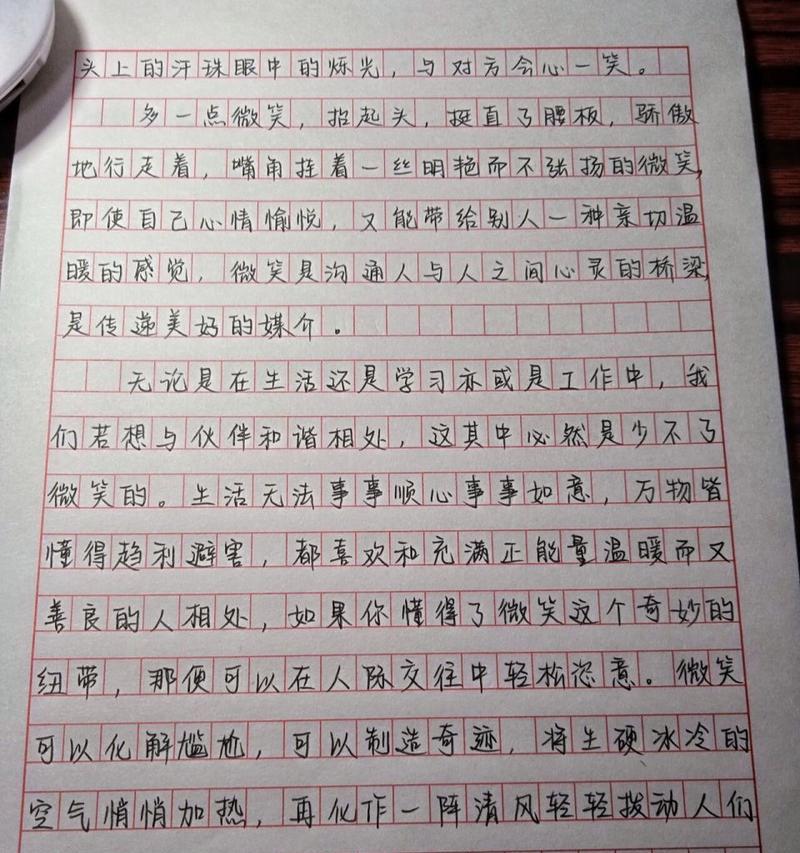 头上的汗珠眼中的烁光，与对方会心一笑。
多一点微笑，抬起头，挺直了腰板，骄傲
地行走着，嘴角挂着一丝明艳而不张扬的微笑，
即使自己心情愉悦，又能带给别人一种亲切温
暖的感觉，微笑是沟通人与人之间心灵的桥梁，
是传递美好的媒介。
无论是在生活还是学习亦或是工作中，我
们若想与伙伴和谐相处，这其中必然是少不了
微笑的。生活无法事事顺心事事如意，万物皆
懂得趋利避害，都喜欢和充满正能量温暖而又
善良的人相处，如果你懂得了微笑这个奇妙的
纽带，那便可以在人际交往中轻松恣意。微笑
可以化解尴尬，可以制造奇迹，将生硬冰冷的
空气悄悄加热，再化作一阵清风轻轻拨动人们